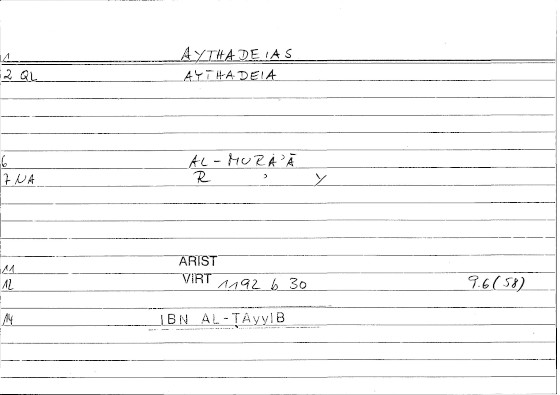 1 AYTHADEIAS
2 QL AYTHADEIA
6 AL-MURĀ'Ā
7 NA R ' Y
11 ARIST
12 VIRT 1192 b 30 9.6 (58)
14 IBN AL-ṬAyyIB